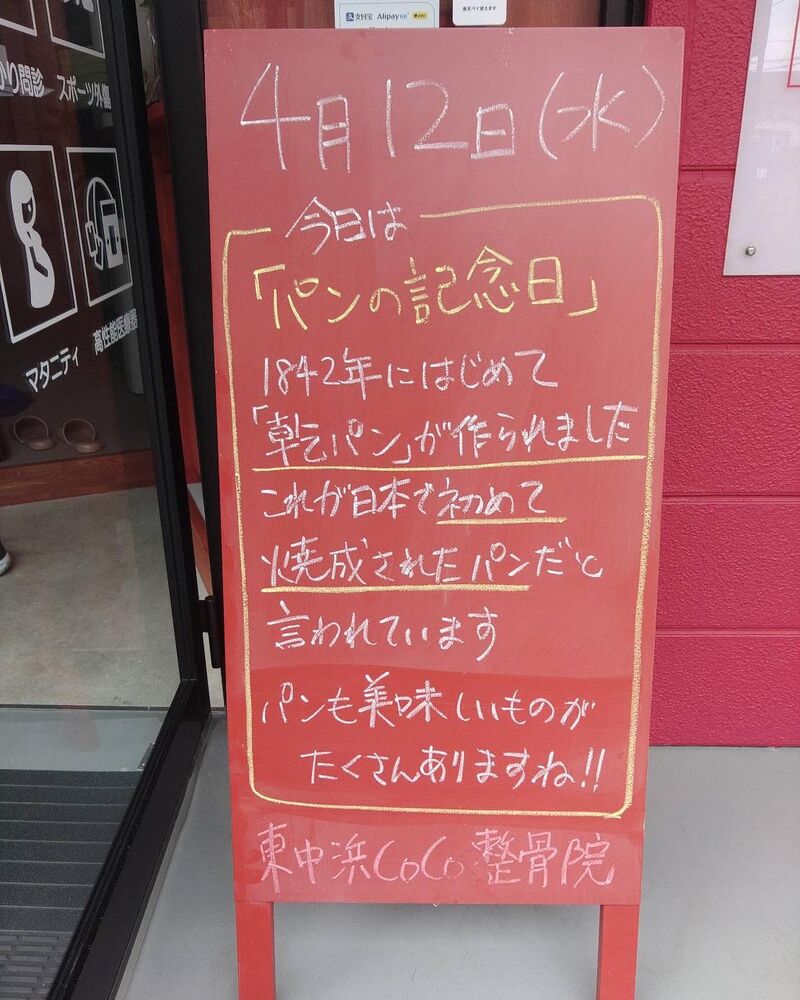 支付宝 Alipay HK
楽天ペイ使えます
かり問診
スポーツ外傷
マタニティ
高性能医療器
4月12日(水)
今日は
「パンの記念日」
1842年にはじめて
「乾パン」が作られました
これが日本で初めて
焼成されたパンだと
言われています
パンも美味しいものが
たくさんありますね!!
東中浜CoCo整骨院